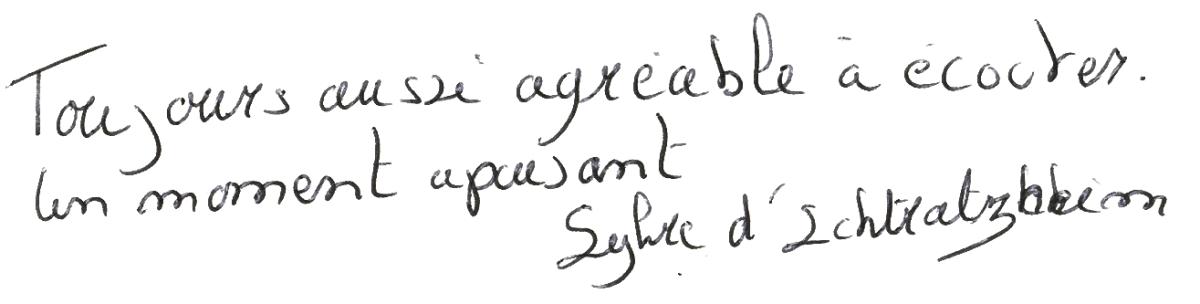 Toujours aussi agréable à écouter.
Un moment apaisant
Sylvie d'Ichtratzheim